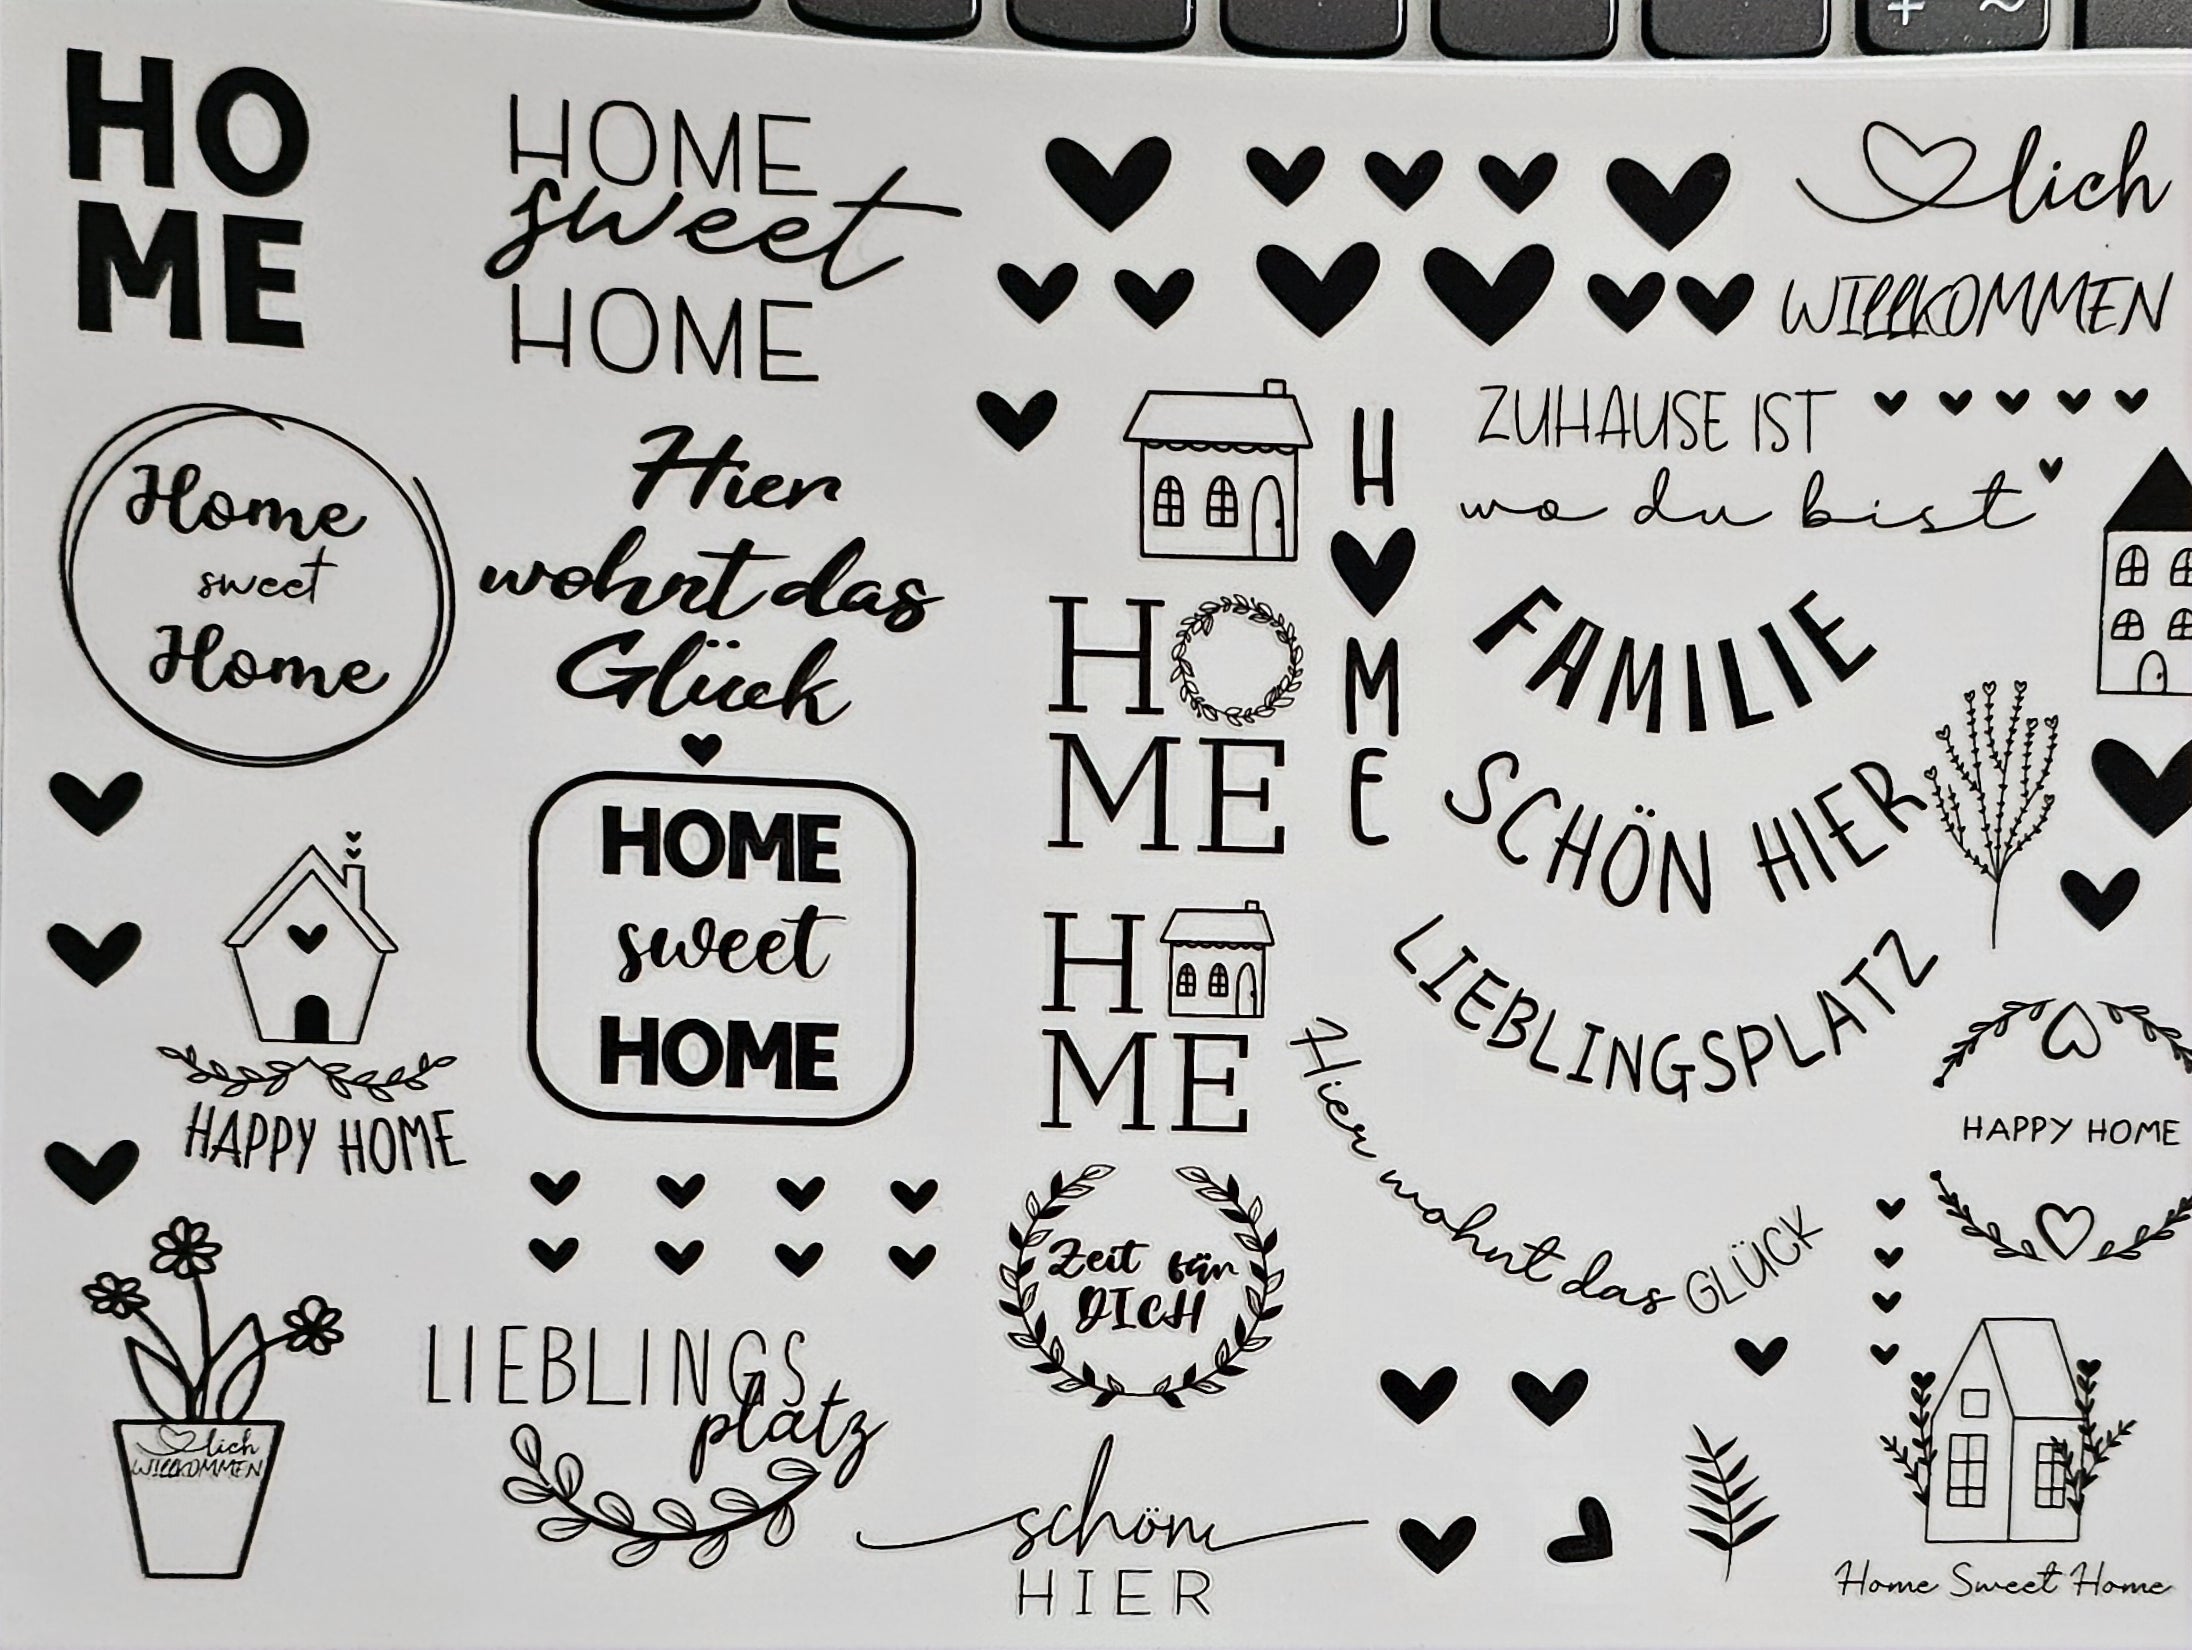 + ~
HO
ME
HOME
sweet
HOME
lich
WILLKOMMEN
Home
sweet
Home
Hier
wohnt das
Glück
H
M
E
ZUHAUSE IST
wo du bist
H
ME
FAMILIE
SCHÖN HIER
LIEBLINGSPLATZ
HOME
sweet
HOME
HAPPY HOME
H
ME
Hier wohnt das GLÜCK
HAPPY HOME
Zeit für
DICH
lich
WILLKOMMEN
LIEBLINGS
platz
schön
HIER
Home Sweet Home